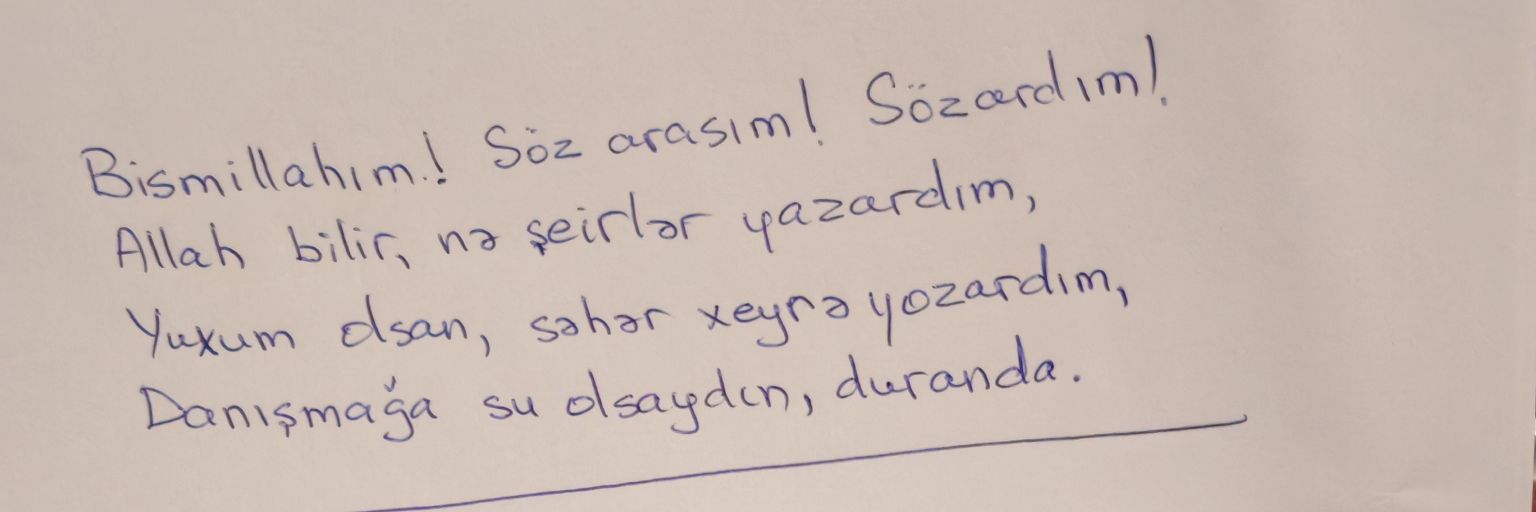 Bismillahım! Söz arasım! Sözardım!
Allah bilir, nə şeirlər yazardım,
Yuxum olsan, səhər xeyrə yozardım,
Danışmağa su olsaydın, duranda.